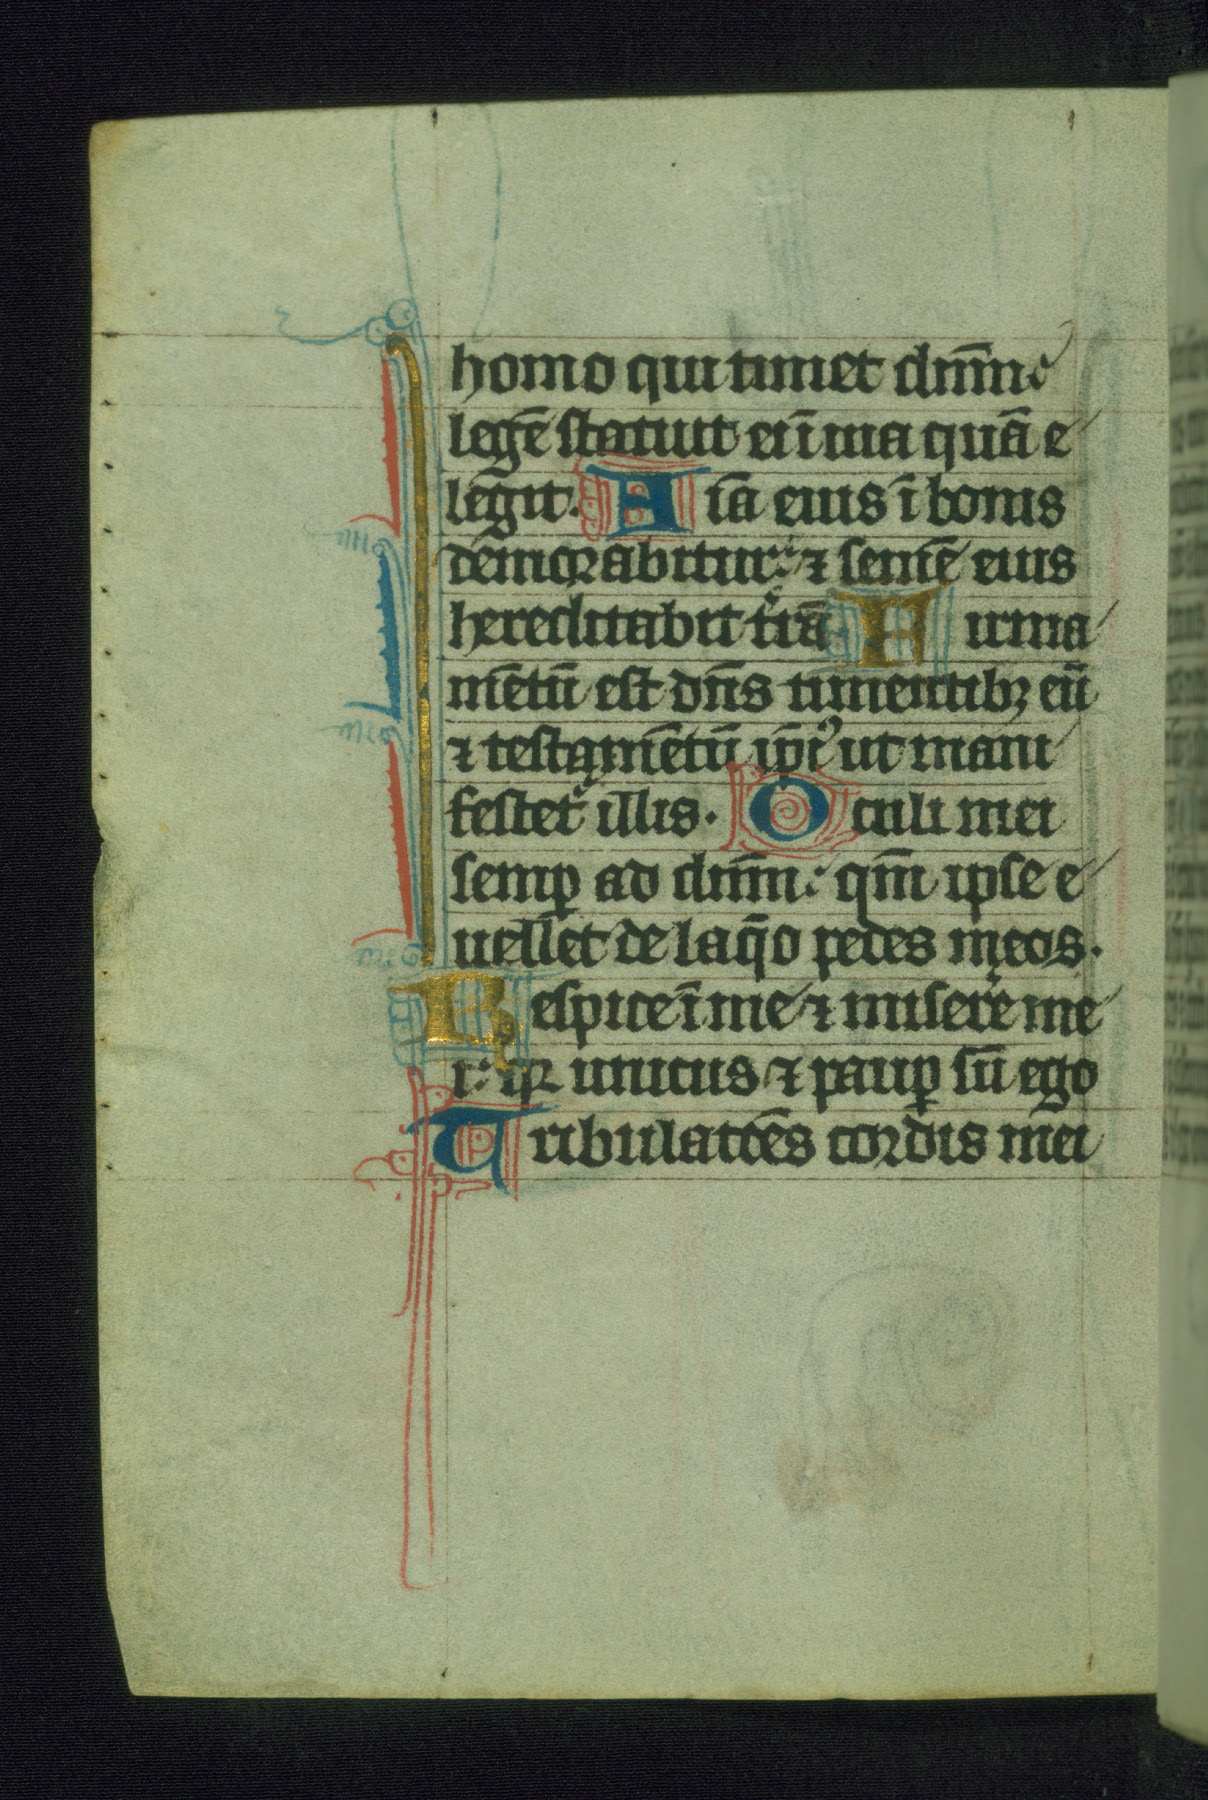 homo qui timet dñm:
legẽ statuit ei ĩ uia quã e
legit. Aĩa eius ĩ bonis
demorabitur: ⁊ semẽ eius
hereditabit t̃rã Firma
mẽtũ est dñs timentibꝫ eũ
⁊ testamẽtũ ip̃iꝰ ut mani
festet̃ illis. Oculi mei
semꝑ ad dñm: qm̃ ipse e
uellet de laq̃o pedes meos.
Respice ĩ me ⁊ miserẽ me
i: qꝛ unicus ⁊ pauꝑ sũ ego
Tribulatões cordis mei